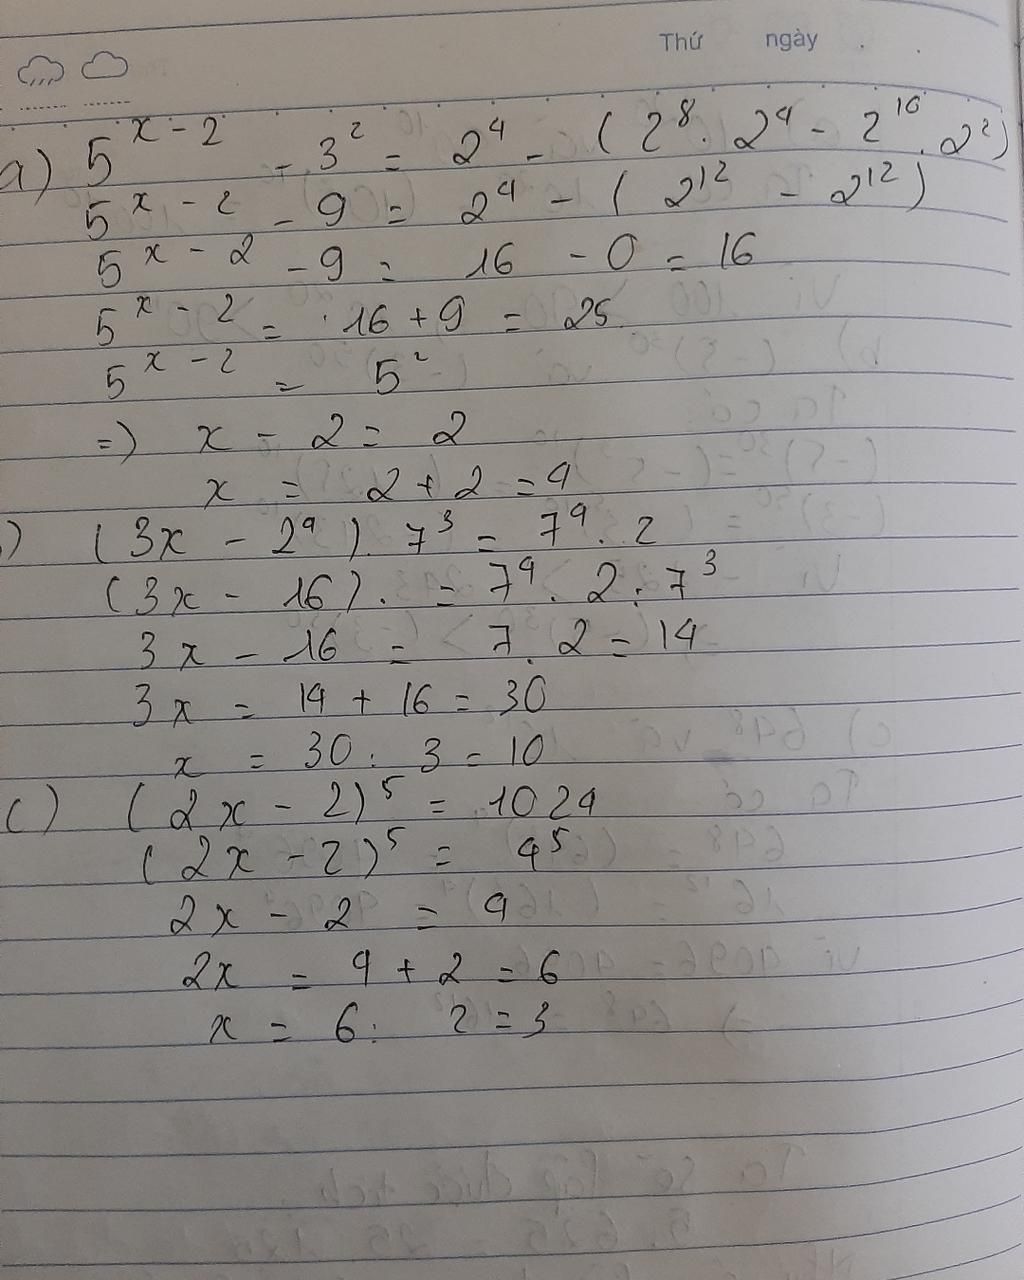 Thứ ngày
a) 5^{x-2} - 3² = 2⁴ - (2⁸ . 2⁴ - 2¹⁰ . 2²)
5^{x-2} - 9 = 2⁴ - (2¹² - 2¹²)
5^{x-2} - 9 = 16 - 0 = 16
5^{x-2} = 16 + 9 = 25
5^{x-2} = 5²
=> x - 2 = 2
x = 2 + 2 = 4
) (3x - 2⁴) . 7³ = 7⁴ . 2
(3x - 16) . = 7⁴ . 2 : 7³
3x - 16 = 7 . 2 = 14
3x = 14 + 16 = 30
x = 30 : 3 = 10
c) (2x - 2)⁵ = 1024
(2x - 2)⁵ = 4⁵
2x - 2 = 4
2x = 4 + 2 = 6
x = 6 : 2 = 3